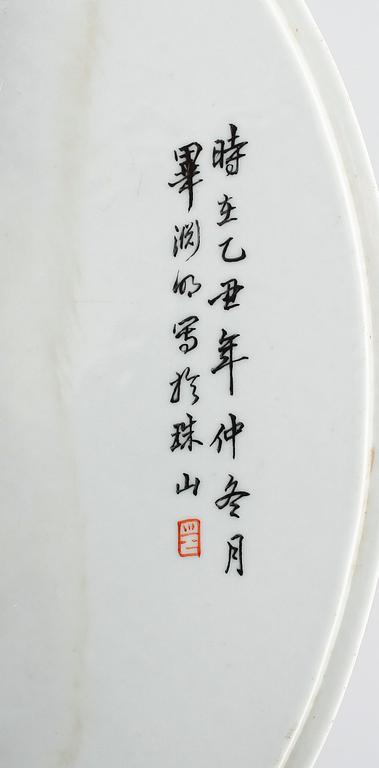 時在乙丑年仲冬月
畢渊明写於珠山